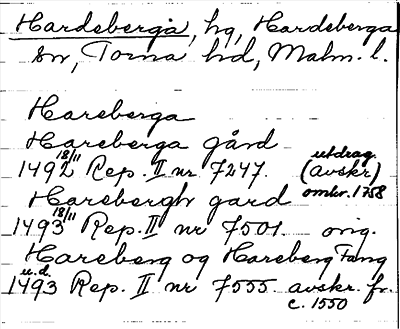 Hardeberga, hg, Hardeberga
sn, Torna hd, Malm. l.
Hareberga
Hareberga gård
1492 18/11 Rep. II nr 7247. (utdrag. avskr) omkr. 1758
Harebergh gard
1493 18/11 Rep. II nr 7501. orig.
Hareberg og Hareberg Fang
1493 u.d. Rep. II nr 7555 avskr. fr. c. 1550